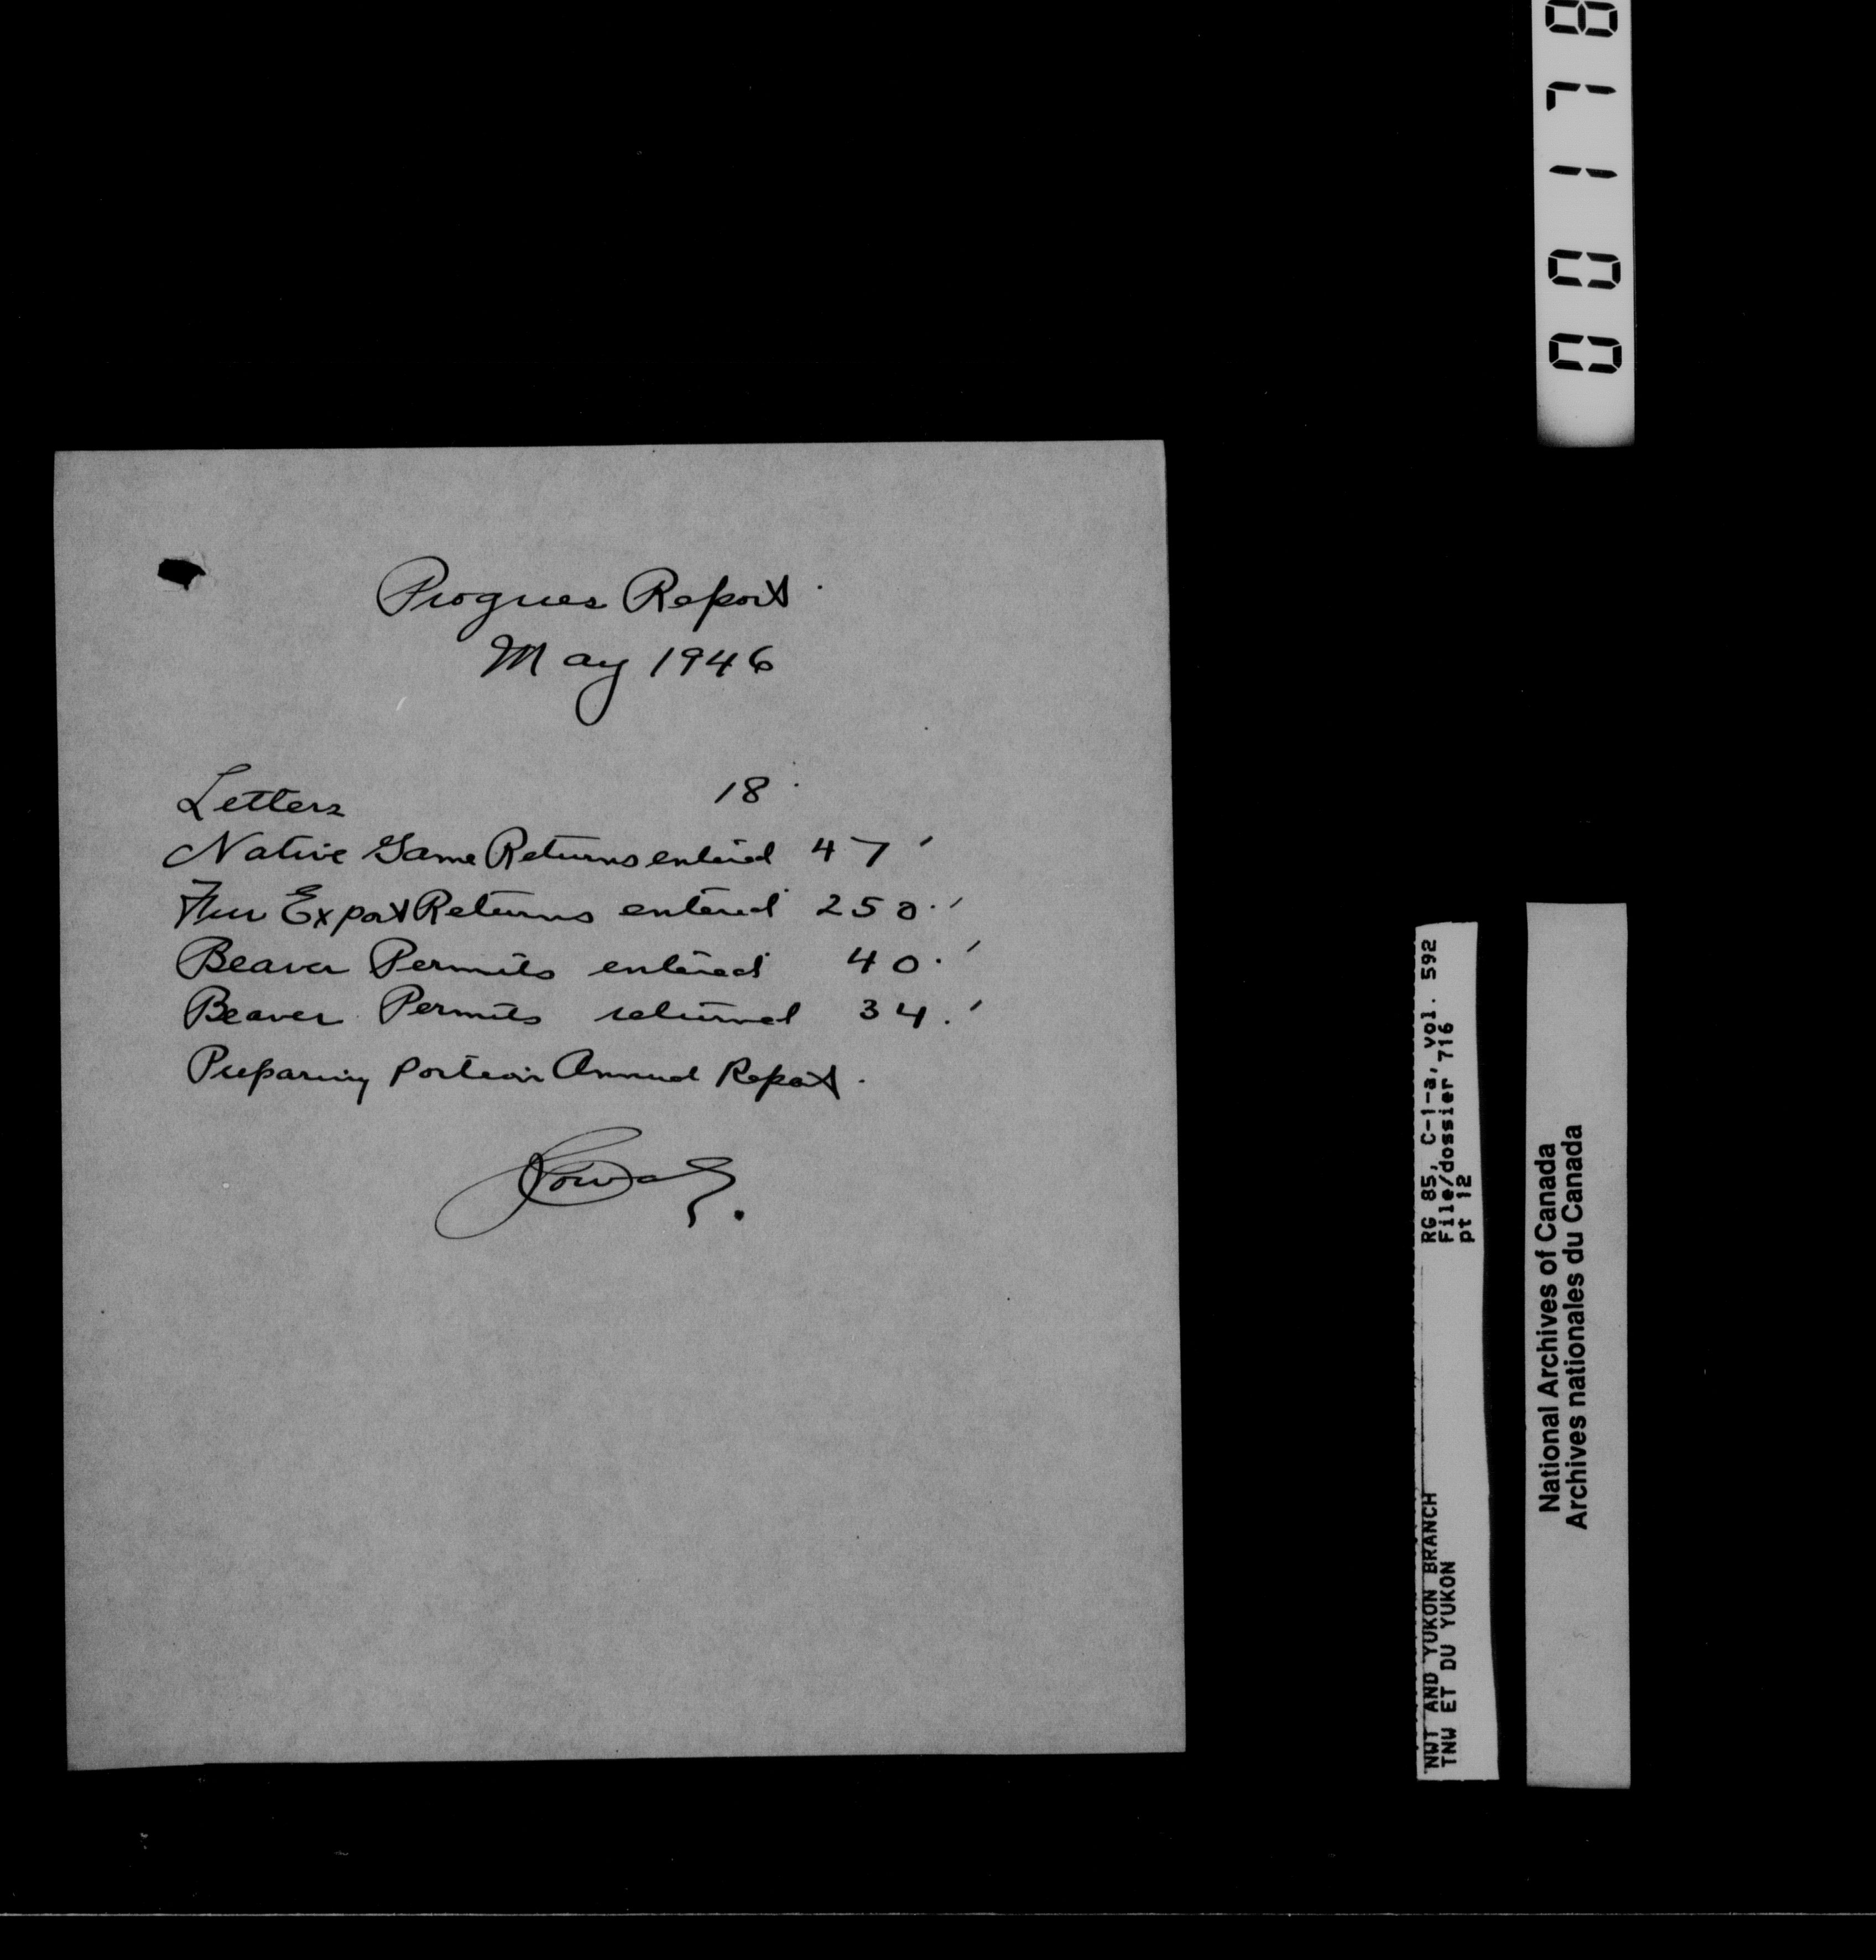 Progress Report.
May 1946
Letters 18
Native Game Returns entered 47
Fur Export Returns entered 250
Beaver Permits entered 40
Beaver Permits returned 34
Preparing portion Annual Report.
00178
RG 85, C-1-a, vol. 592
File/dossier 716
pt 12
NWT AND YUKON BRANCH
TNW ET DU YUKON
National Archives of Canada
Archives nationales du Canada